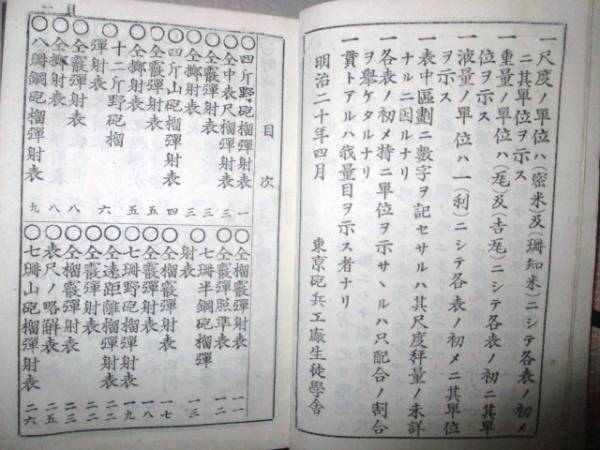 一尺度ノ單位ハ(密米)及(珊知米)ニシテ各表ノ初メ
ニ其單位ヲ示ス
一重量ノ單位ハ(瓱)及(吉瓱)ニシテ各表ノ初ニ其單
位ヲ示ス
一液量ノ單位ハ一(利)ニシテ各表ノ初メニ其單位
ヲ示ス
一表中區劃ニ數字ヲ記セサルハ其尺度秤量ノ未詳
ナルニ因ルナリ
一各表ノ初メ特ニ單位ヲ示サヽルハ只配合ノ割合
ヲ擧ケタルナリ
一貫トアルハ我量目ヲ示ス者ナリ
明治二十年四月 東京砲兵工廠生徒學舎
目次
〇四斤野砲榴彈射表 一
〇仝中表尺榴彈射表 三
〇仝霰彈射表 三
〇仝擲射表 三
〇四斤山砲榴彈射表 四
〇仝霰彈射表 五
〇仝擲射表 五
〇十二斤野砲榴
彈射表 六
〇仝霰彈射表 八
〇仝擲射表 八
〇八珊鋼砲榴彈射表 九
〇仝榴霰彈射表 一一
〇仝霰彈照準表 一二
〇七珊半鋼砲榴彈
射表 一三
〇仝榴霰彈射表 一七
〇仝霰彈射表 一八
〇七珊野砲榴彈射表 一九
〇仝遠距離榴彈射表 二二
〇仝榴霰彈射表 二三
〇表尺ノ略解表 二五
〇七珊山砲榴彈射表 二六